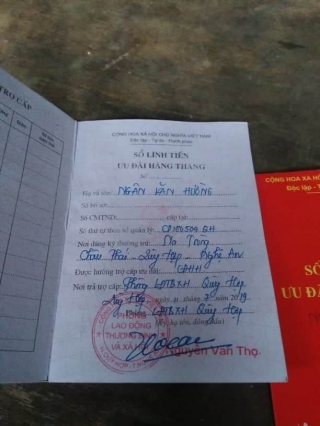 TRỢ CẤP
CỘNG HÒA XÃ HỘI CHỦ NGHĨA VIỆT NAM
Độc lập - Tự do - Hạnh phúc
SỔ LĨNH TIỀN
ƯU ĐÃI HÀNG THÁNG
Số
Họ và tên: NGÂN VĂN HƯỜNG
Số hồ sơ
Số CMTND: cấp tại:
Số thứ tự theo sổ quản lý: CĐ104504 BH
Nơi đăng ký thường trú:
Châu Thái - Quỳ Hợp - Nghệ An
Được hưởng trợ cấp ưu đãi: CĐHH
Nơi trả trợ cấp: Phòng LĐTBXH Quỳ Hợp
Quỳ Hợp, ngày 7
Phòng LĐTBXH Quỳ Hợp
(Ký, họ tên, đóng dấu)
PHÒNG
LAO ĐỘNG
THƯƠNG BINH
VÀ XÃ HỘI
Nguyễn Văn Thọ
CỘNG HÒA XÃ H
Độc lập - T
SỐ
ƯU ĐÃI